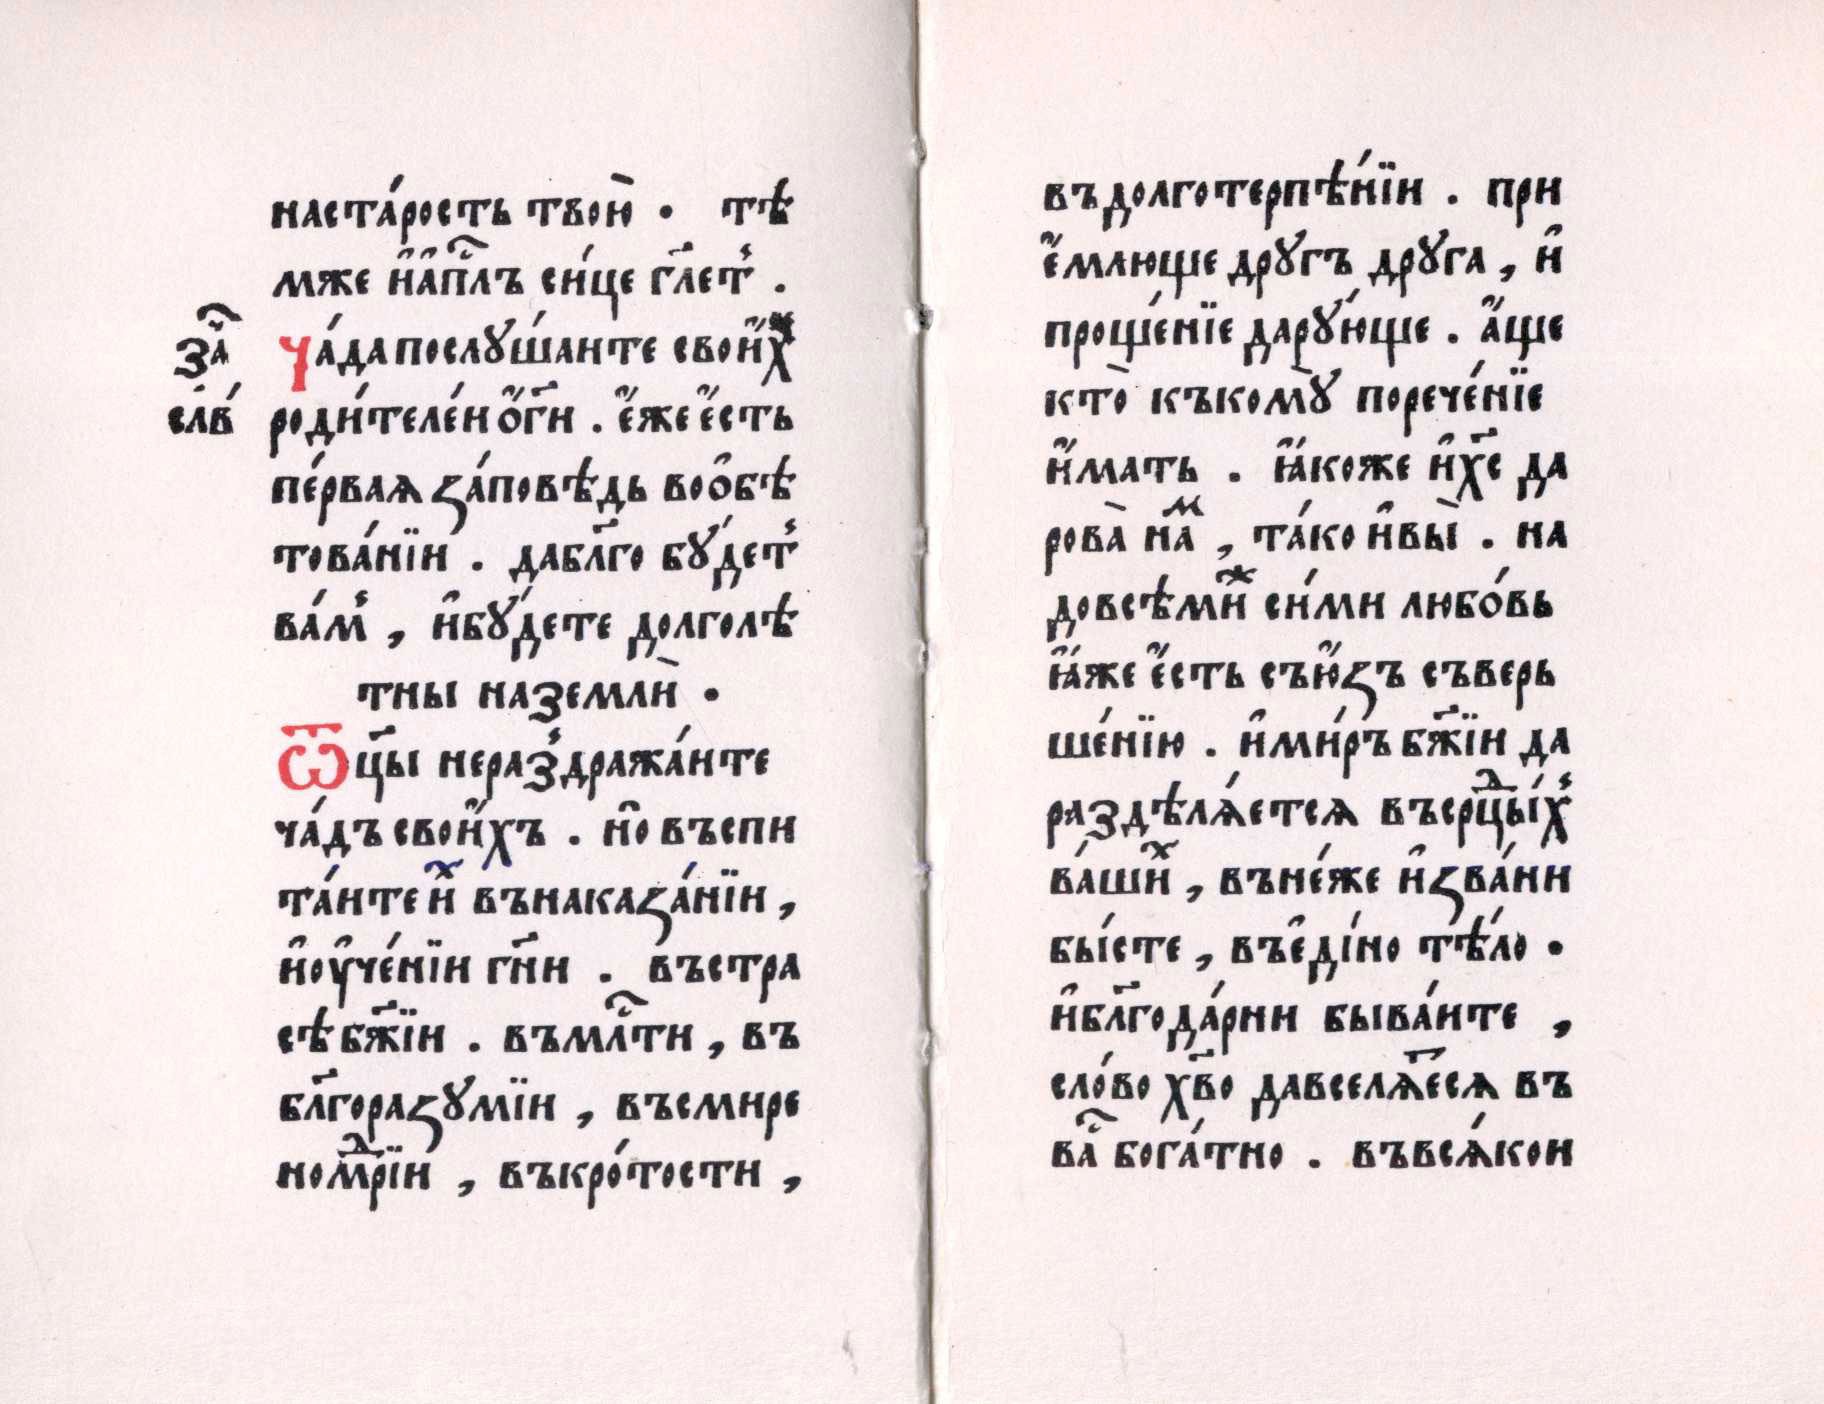 наста́рость твою̀ . тѣ́
мже и҆ а҆пⷭ҇лъ си́це гл҃етъ .
за҄ ча́да послꙋ́шаите свои҆́хъ
сл҃в роди́теле́и ѻ҆́ г҃и . є҆́же є҆́сть
пе́рваѧ ꙁа́повѣдь во ѻ҆бѣ
това́нїи . да бл҃го бꙋ́детъ
ва́мъ , и҆ бꙋ́дете долголѣ́
тны на землѝ .
Ѿцы нераздража́ите
ча́дъ свои҆́хъ . но̑ въспи
та́ите и҆̀ⷯ въ накаꙁа́нїи ,
и҆ оу҆че́нїи гн҃и . въ стра
сѣ бж҃їи . въ млⷭ҇ти , въ
бл҃гораꙁꙋмїи , въ смире
номⷣрїи , въ кро́тости ,
въ долготерпѣ́нїи . при
є҆́млюще дрꙋгъ дрꙋга , и҆
проще́нїе дарꙋ́юще . а҆́ще
кто̀ къ комꙋ̀ порече́нїе
и҆́мать . ꙗ҆́коже и҆ хс҃ да
рова̀ наⷨ , та́ко и҆ вы̀ . на
до всѣ́миⷤ си́ми любо́вь
ꙗ҆́же є҆́сть съю҆́ꙁъ съверь
ше́нїю . и҆ ми́ръ бж҃їи да
раздѣлѧ́етсѧ въ срⷣцы́хъ
ва́шиⷯ , въ не́же и҆ ꙁва́ни
бы́сте , въ є҆ді́но тѣ́ло .
и҆ бл҃года́рни быва́ите ,
сло́во хв҃о да вселѧ́етсѧ въ
ваⷭ҇ бога́тно . въ всѧ́кои